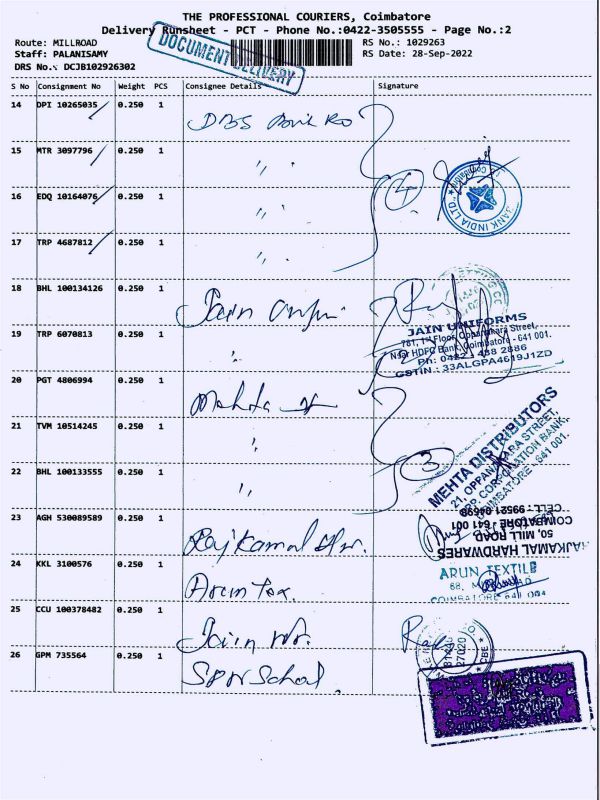 THE PROFESSIONAL COURIERS, Coimbatore
Delivery Runsheet - PCT - Phone No.:0422-3505555 - Page No.:2
Route: MILLROAD RS No.: 1029263
Staff: PALANISAMY RS Date: 28-Sep-2022
DOCUMENT DELIVERY
DRS No.: DCJB102926302
S No Consignment No Weight PCS Consignee Details Signature
14 DPI 10265035 0.250 1 DBS
15 MTR 3097796 0.250 1 "
16 EDQ 10164076 0.250 1 "
17 TRP 4687812 0.250 1 "
4
BANK INDIA LTD
18 BHL 100134126 0.250 1 Jain
19 TRP 6070813 0.250 1 "
JAIN UNIFORMS
781, 1st Floor, Oppanakara Street,
Near HDFC Bank, Coimbatore - 641 001.
Ph: 0422 - 438 2886
GSTIN : 33ALGPA4619J1ZD
20 PGT 4806994 0.250 1 Mehta
21 TVM 10514245 0.250 1 "
22 BHL 100133555 0.250 1 "
3
MEHTA DISTRIBUTORS
21, OPPANAKARA STREET,
OPP. CORPORATION BANK,
COIMBATORE - 641 001.
23 AGH 530089589 0.250 1 Rajkamal
RAJKAMAL HARDWARES
50, MILL ROAD
COIMBATORE - 641 001
CELL : 99521 04698
24 KKL 3100576 0.250 1 Arun Tex.
ARUN TEXTILE
COIMBATORE 641 001
25 CCU 100378482 0.250 1 Jain
26 GPM 735564 0.250 1 School